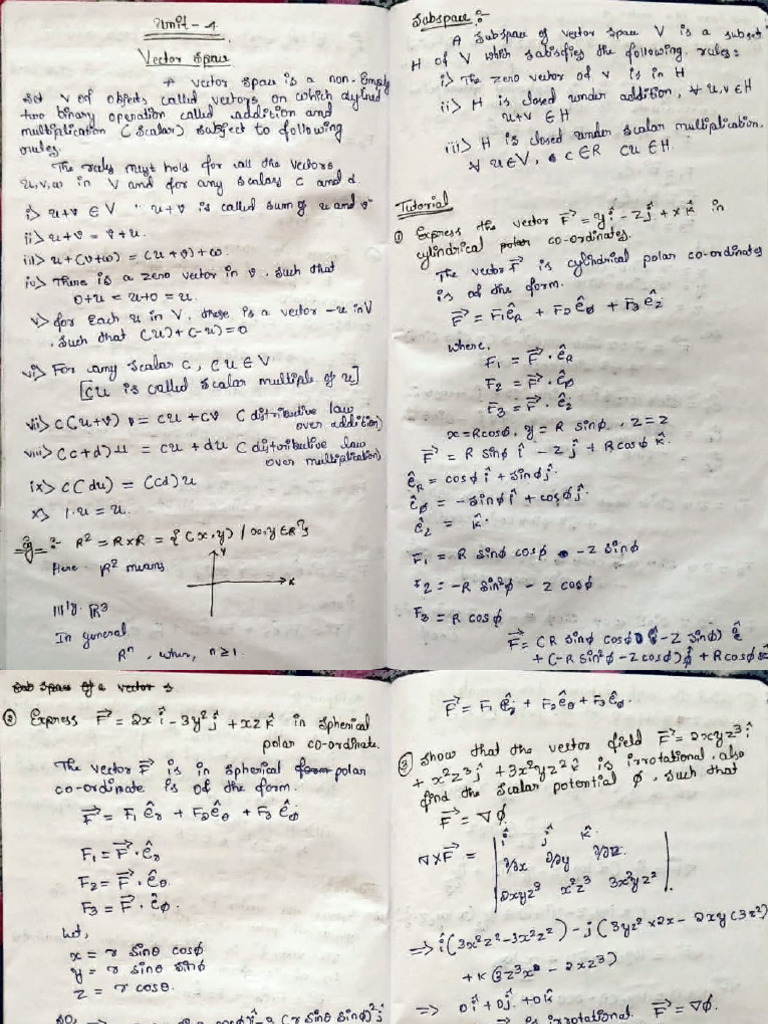 Unit - 4
Vector Space
A vector space is a non-Empty
set V of objects, called vectors, on which defined
two binary operation called addition and
multiplication (scalar) subject to following
rules.
The rules must hold for all the vectors
u, v, w in V and for any scalars c and d.
i> u+v ∈ V ∵ u+v is called sum of u and v
ii> u+v = v+u.
iii> u+(v+w) = (u+v)+w.
iv> There is a zero vector in v. such that
0+u = u+0 = u.
v> for Each u in V, there is a vector -u in V
. such that (u)+(-u)=0
vi> For any scalar c, cu ∈ V
[cu is called scalar multiple of u]
vii> c(u+v) = cu + cv (distributive law
over addition)
viii> (c+d)u = cu + du (distributive law
over multiplication)
ix> c(du) = (cd)u
x> 1.u = u.
eg :- R² = R×R = {(x,y) / x,y ∈ R}
Here R² means
Y
X
|||ly R³
In general
Rⁿ, when, n≥1.
Subspace :
A subspace of vector space V is a subset
H of V which satisfies the following rules:
i> The zero vector of v is in H
ii> H is closed under addition, ∀ u,v ∈ H
u+v ∈ H
iii> H is closed under scalar multiplication.
∀ u ∈ V, c ∈ R cu ∈ H.
Tutorial
① Express the vector F⃗ = yî - zĵ + xk̂ in
cylindrical polar co-ordinates.
The vector F⃗ is cylindrical polar co-ordinates
is of the form.
F⃗ = F₁ê_R + F₂ê_ϕ + F₃ê_z
where,
F₁ = F⃗ · ê_R
F₂ = F⃗ · ê_ϕ
F₃ = F⃗ · ê_z
x = R cosϕ, y = R sinϕ, z = z
F⃗ = R sinϕ î - z ĵ + R cosϕ k̂.
ê_R = cosϕ î + sinϕ ĵ.
ê_ϕ = -sinϕ î + cosϕ ĵ.
ê_z = k̂.
F₁ = R sinϕ cosϕ - z sinϕ
F₂ = -R sin²ϕ - z cosϕ
F₃ = R cosϕ
F⃗ = (R sinϕ cosϕ - z sinϕ) ê
+ (-R sin²ϕ - z cosϕ)ϕ̂ + R cosϕ k̂
Sub space of a vector s
② Express F⃗ = 2x î - 3y² ĵ + xz k̂ in spherical
polar co-ordinate.
The vector F⃗ is in spherical form polar
co-ordinate is of the form.
F⃗ = F₁ ê_r + F₂ê_θ + F₃ ê_ϕ
F₁ = F⃗ · ê_r
F₂ = F⃗ · ê_θ.
F₃ = F⃗ · ê_ϕ.
Let,
x = r sinθ cosϕ
y = r sinθ sinϕ
z = r cosθ.
F⃗ = F₁ ê_r + F₂ê_θ + F₃ê_ϕ.
③ Show that the vector field F⃗ = 2xyz³ î
+ x²z³ ĵ + 3x²yz² k̂ is irrotational, also
find the scalar potential ϕ, such that
F⃗ = ∇ϕ.
î ĵ k̂
∇×F⃗ = ∂/∂x ∂/∂y ∂/∂z
2xyz³ x²z³ 3x²yz²
⇒ î(3x²z² - 3x²z²) - j(3yz² × 2x - 2xy(3z²)
+ k(2z³x - 2xz³)
⇒ 0î + 0ĵ + 0k̂
is irrotational. F⃗ = ∇ϕ.